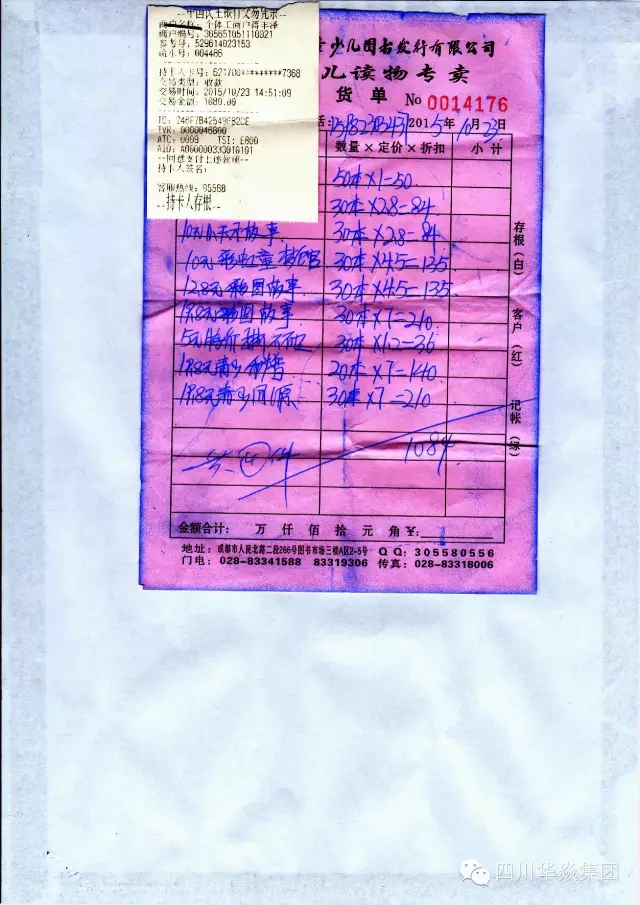 商户名称: 个体工商户蒋丰泽
商户编号: 305651051110021
参考号: 529614023153
流水号: 004486
持卡人卡号: 621700*********7368
交易类型: 收款
交易时间: 2015/10/23 14:51:09
交易金额: 1680.00
TC: 246F7B42549F82CE
TVR: 0000046800
ATC: 0009 TSI: E800
AID: A000000333010101
--同意支付上述款项--
持卡人签名:
客服热线: 95568
--持卡人存根--
少儿图书发行有限公司
儿读物专卖
货单 No 0014176
2015年10月23日
数量×定价×折扣 小计
50本×1=50
30本×2.8=84
故事 30本×2.8=84
10元 30本×4.5=135
12.8元 图故事 30本×4.5=135
故事 30本×7=210
5元 30本×1.2=36
20本×7=140
30本×7=210
共④件 1084
金额合计: 万仟佰拾元角¥:
地址:成都市人民北路二段266号图书市场三楼A区2-5号 QQ:305580556
门电:028-83341588 83319306 传真:028-83318006
存根(白) 客户(红) 记帐(绿)
四川华焱集团